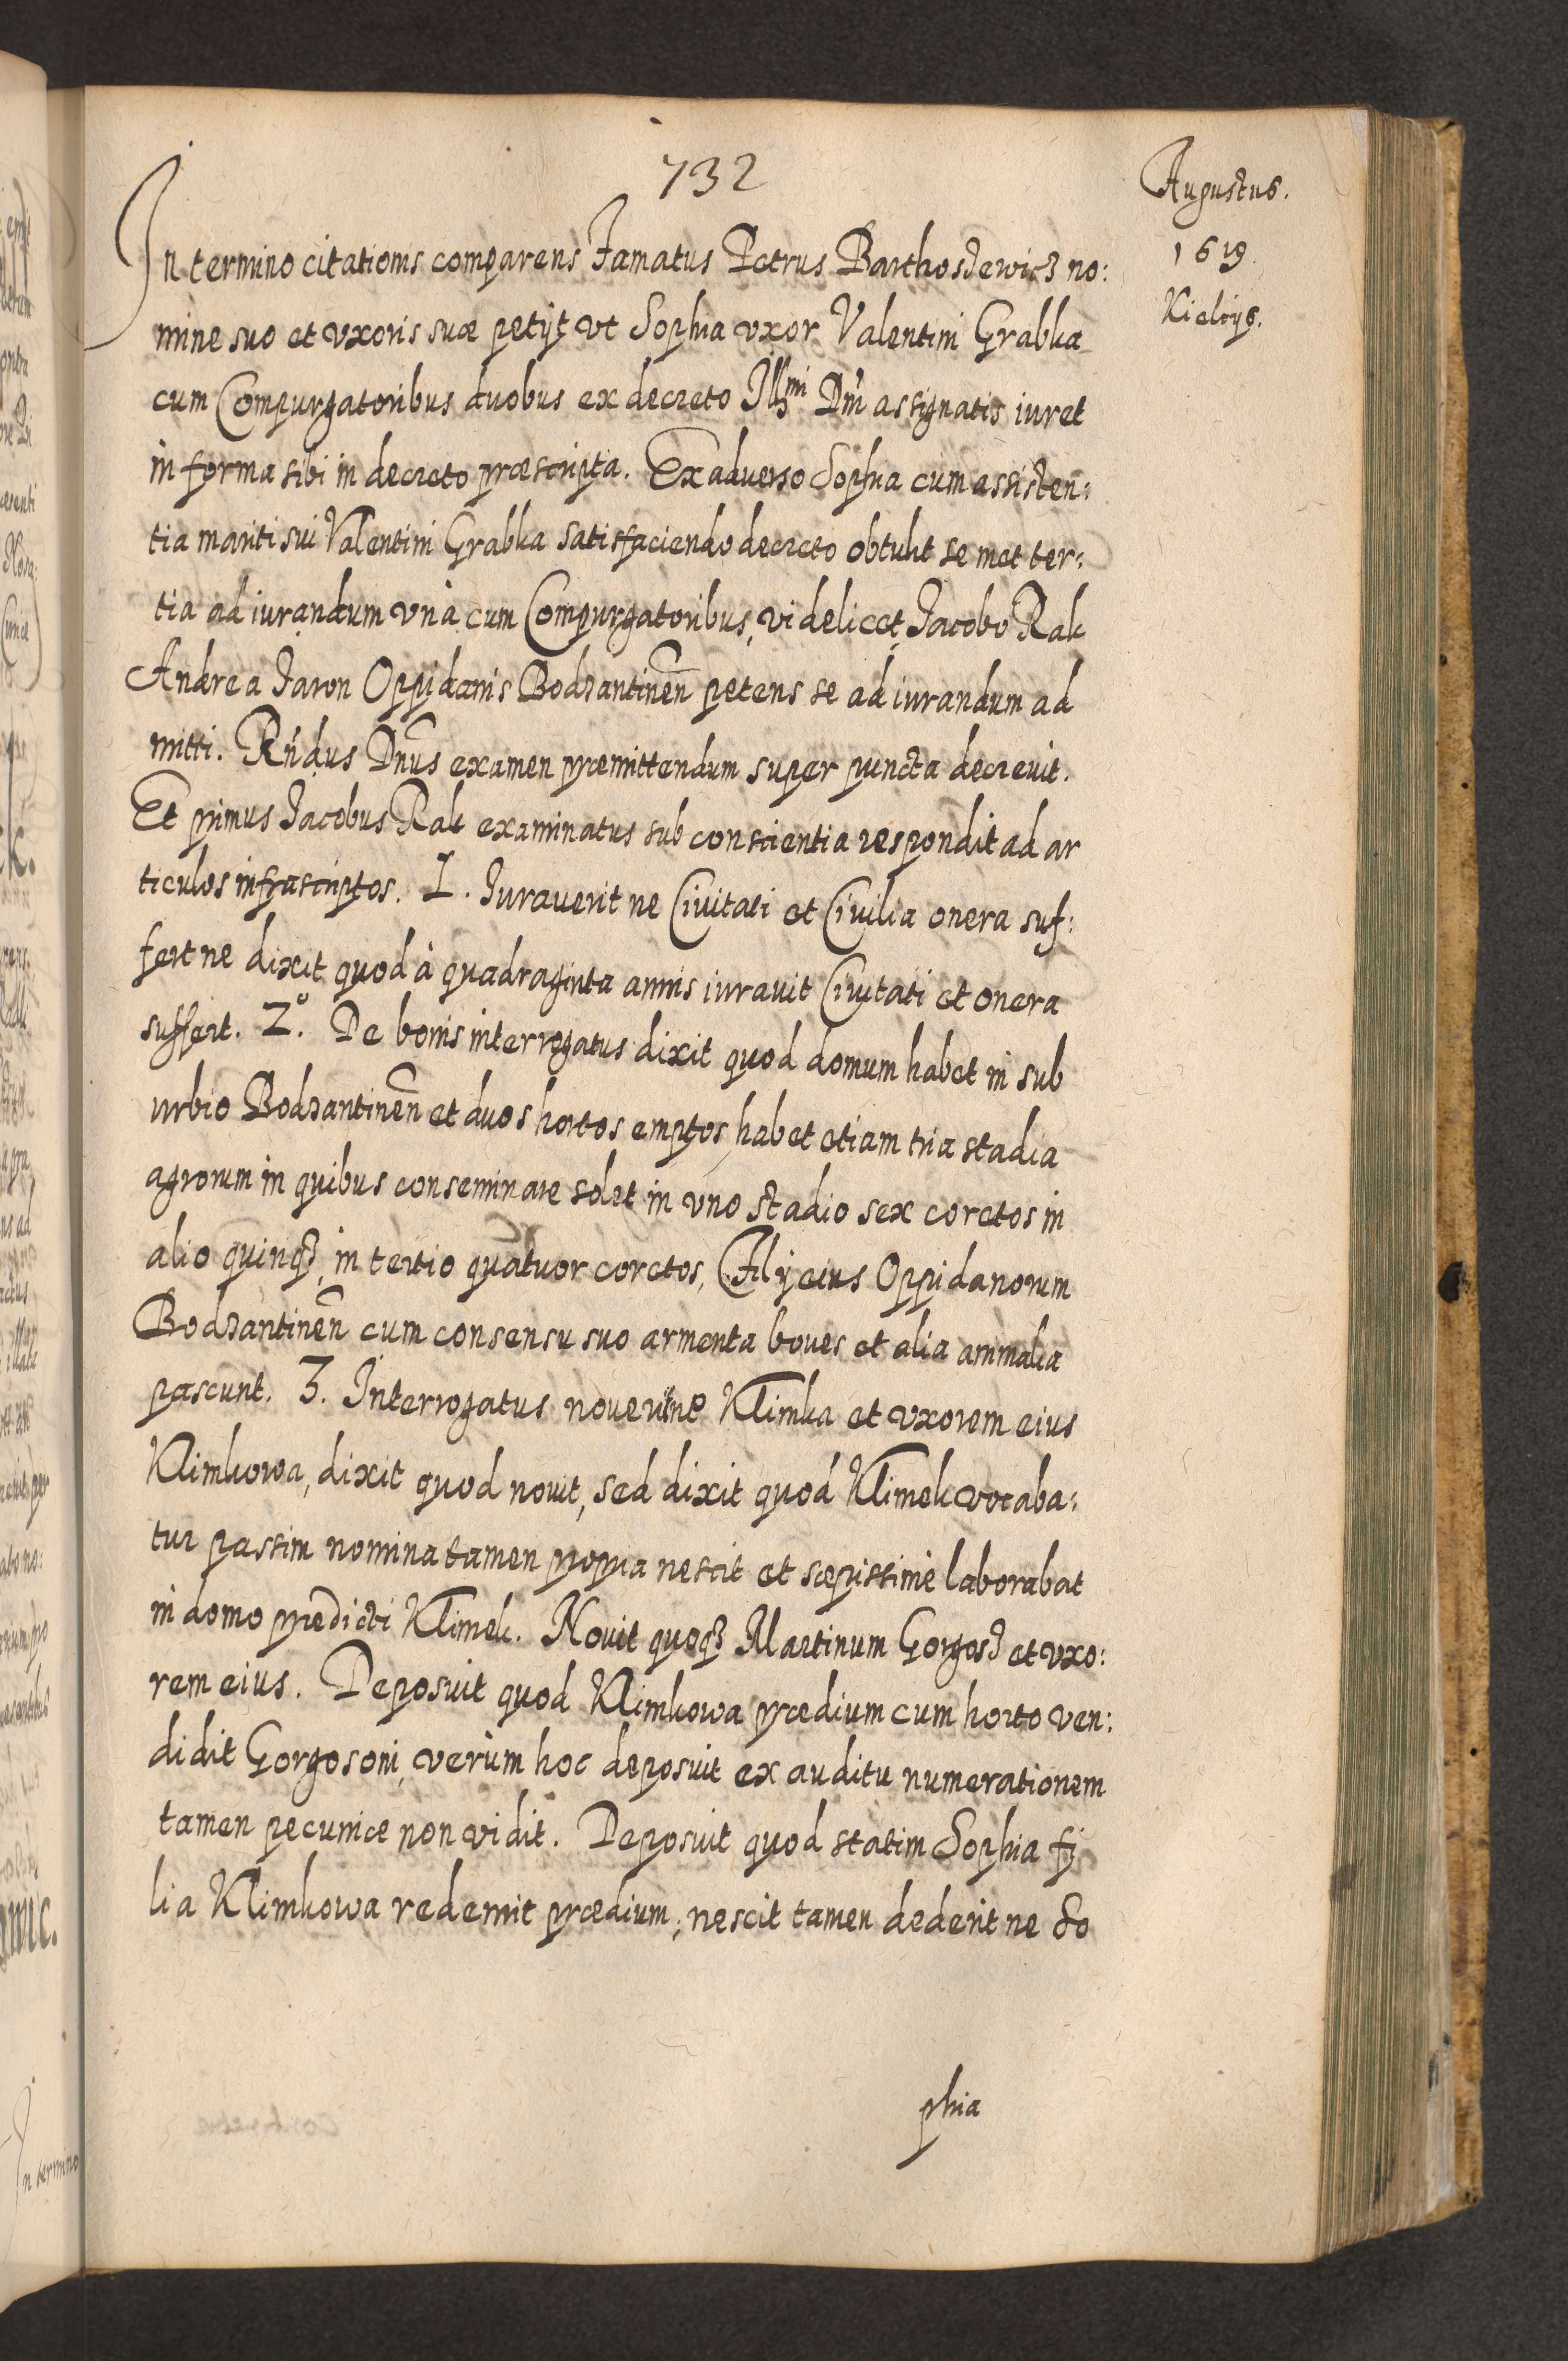 732
Augustus.
1619.
Kielcijs.
In termino citationis comparens Famatus Petrus Barthosdewicz no:
mine suo et vxoris suæ petijt vt Sophia vxor Valentini Grabka
cum Compurgatoribus duobus ex decreto Illmi Dni assignatis iuret
in forma sibi in decreto præscripta. Ex aduerso Sophia cum assisten:
tia mariti sui Valentini Grabka satisfaciendo decreto obtulit se met ter:
tia ad iurandum vnà cum Compurgatoribus, videlicet Jacobo Rak
Andrea Jaron Oppidanis Bodzantinen petens se ad iurandum ad
mitti. Rndus Dnus examen præmittendum super puncta decreuit.
Et primus Jacobus Rak examinatus sub conscientia respondit ad ar
ticulos infrascriptos. I. Jurauerit ne Ciuitati et Ciuilia onera suf:
fert ne dixit quod à quadraginta annis iurauit Ciuitati et onera
suffert. 2º. De bonis interrogatus dixit quod domum habet in sub
urbio Bodzantinen et duos hortos emptos, habet etiam tria stadia
agrorum in quibus conseminare solet in vno stadio sex coretos in
alio quinqz, in tertio quatuor coretos, Filij eius Oppidanorum
Bodzantinen cum consensu suo armenta boues et alia animalia
pascunt. 3. Interrogatus nouerit ne Klimka et vxorem eius
Klimkowa, dixit quod nouit, sed dixit quod Klimek vocaba:
tur passim nomina tamen propria nescit et sæpissimè laborabat
in domo prædicti Klimek. Nouit quoqz Martinum Gorgosz et vxo:
rem eius. Deposuit quod Klimkowa prædium cum horto ven:
didit Gorgosoni, verùm hoc deposuit ex auditu numerationem
tamen pecuniæ non vidit. Deposuit quod statim Sophia fi
lia Klimkowa redemit prædium, nescit tamen dederit ne So
phia